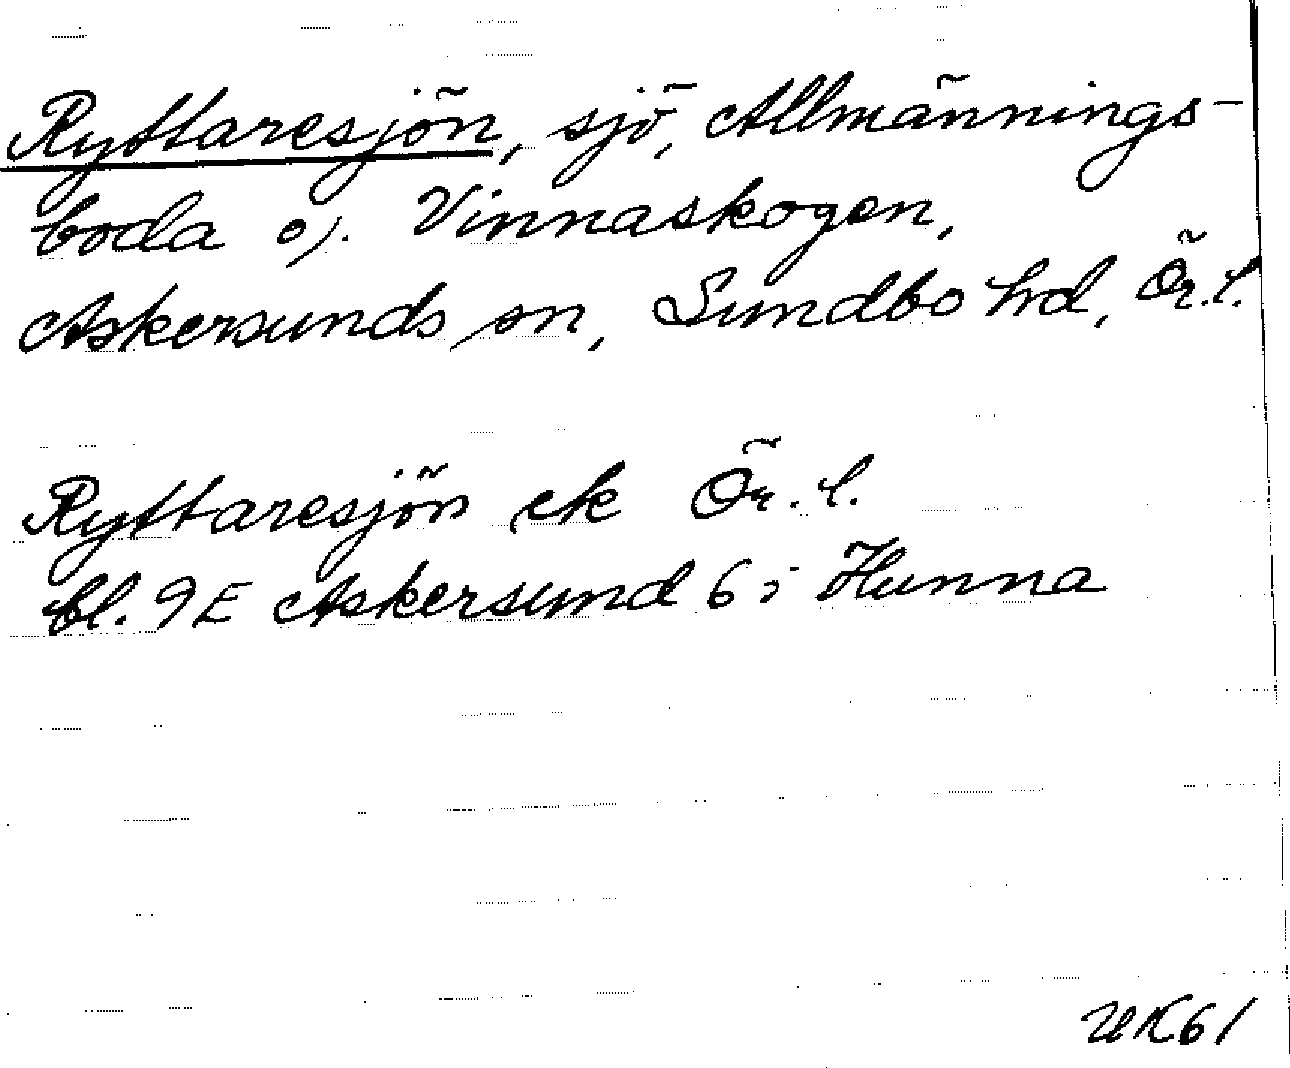 Ryttaresjön, sjö, Allmännings-
boda o). Vinnaskogen,
Askersunds sn, Sundbo hd, Ör.l.
Ryttaresjön ek Ör.l.
bl. 9E Askersund 6 i Hunna
UK61